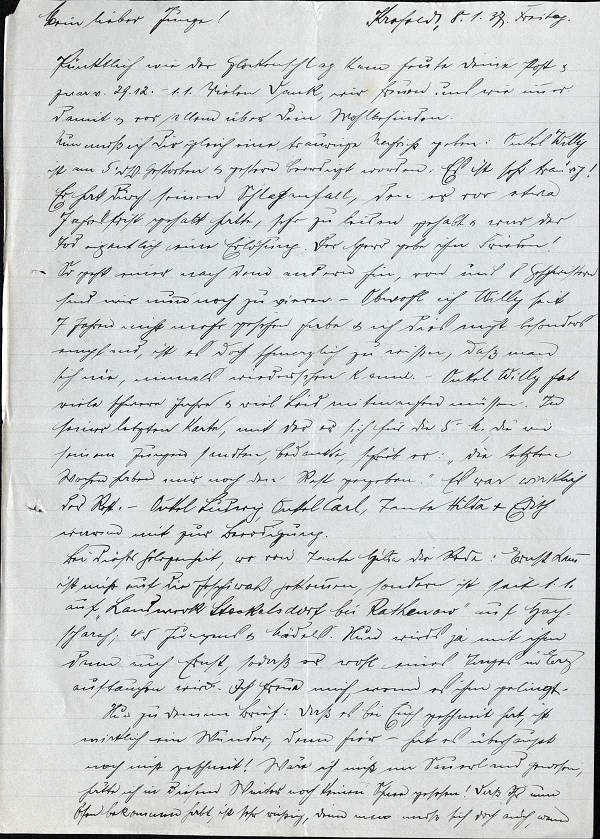 Mein lieber Junge! Krefeld, 8.1.37. Freitag.
Pünktlich wie der Glockenschlag kam heute deine Post &
zwar v. 29.12. - 1.1. Vielen Dank, wir freuen uns wie immer
damit & vor allem über Dein Wohlbefinden.
Nun muß ich Dir gleich eine traurige Nachricht geben: Onkel Willy
ist am 5. gestorben & gestern beerdigt worden. Es ist sehr traurig!
Er hat durch seinen Schlaganfall, den er vor etwa
Jahresfrist gehabt hatte, sehr zu leiden gehabt & war der
Tod eigentlich eine Erlösung. Der Herr gebe ihm Frieden!
So geht einer nach dem anderen hin, von uns 8 Geschwistern
sind wir nur noch zu vieren - Obwohl ich Willy seit
7 Jahren nicht mehr gesehen habe & ich dies nicht besonders
empfand, ist es doch schmerzlich zu wissen, daß man
sich nie, niemals wiedersehen kann. - Onkel Willy hat
viele schwere Jahre & viel Leid mitmachen müssen. In
seiner letzten Karte, mit der er sich für die 5 die wir
seinem Jungen sandten, bedankte, schrieb er: "die letzten
Wochen haben mir noch den Rest gegeben." Es war wirklich
der Rest. - Onkel Ludwig, Onkel Carl, Tante Hilda & Edith
waren mit zur Beerdigung.
Bei dieser Gelegenheit, wo von Tante Hilda die Rede: Ernst
ist nicht auf die gekommen, sondern ist seit 1.1.
auf "Landwerk Steckelsdorf bei Rathenow" auf Hach-
scharah; 45 Jungens & Mädels. Nun wird's ja mit ihm
denn auch Ernst, sodaß er wohl eines Tages in Erez
auftauchen wird. Ich freue mich, wenn es ihm gelingt. -
Nun zu deinem Brief: Daß es bei Euch geschneit hat, ist
wirklich ein Wunder, denn hier - hat es überhaupt
noch nicht geschneit! Wäre ich nicht im Sauerland gewesen,
hätte ich in diesem Winter noch keinen Schnee gesehen! Daß Ihr nun
Ofen bekommen habt ist sehr wichtig, denn man muß sich doch auch, wenn